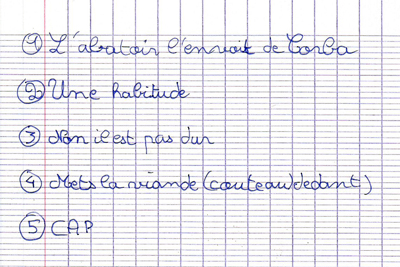 ① L'abatoir l'envoit de Corba
② Une habitude
③ Non il est pas dur
④ Mets la viande (couteau) dedant)
⑤ CAP